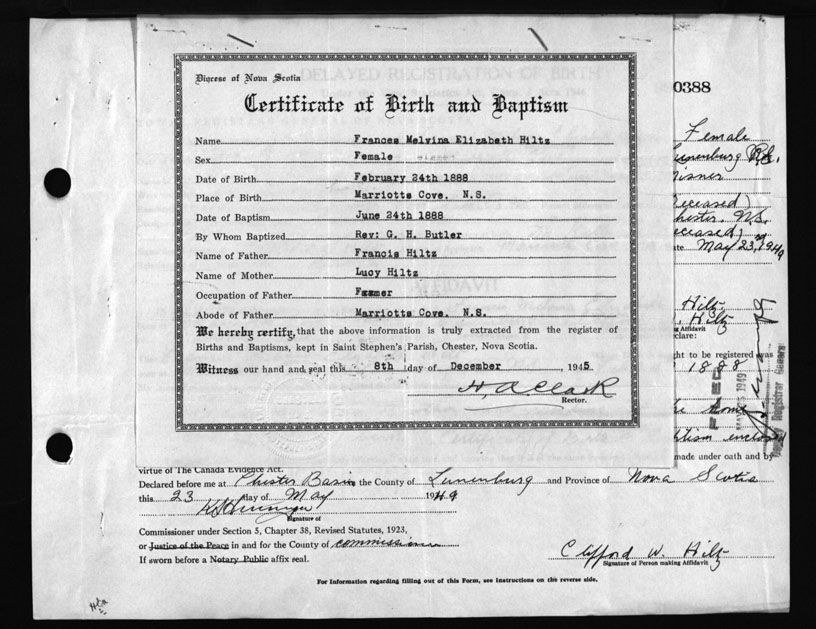 DELAYED REGISTRATION OF BIRTH
0388
Diocese of Nova Scotia
Certificate of Birth and Baptism
Name Frances Melvina Elizabeth Hiltz
Sex Female
Date of Birth February 24th 1888
Place of Birth Marriotts Cove. N.S.
Date of Baptism June 24th 1888
By Whom Baptized Rev: G. H. Butler
Name of Father Francis Hiltz
Name of Mother Lucy Hiltz
Occupation of Father Farmer
Abode of Father Marriotts Cove. N.S.
We hereby certify, that the above information is truly extracted from the register of
Births and Baptisms, kept in Saint Stephen's Parish, Chester, Nova Scotia.
Witness our hand and seal this 8th day of December, 1945
H. A. Clark
Rector.
Female
unenburg
isner
eceased)
hester. N.S.
eceased)
ate May 23, 1949
AFFIDAVIT
Hiltz
Hiltz
g Affidavit
clare:
ght to be registered was
1888
FILED
MAY 25 1949
Deputy Registrar General
he home
ptism enclosed
made under oath and by
virtue of The Canada Evidence Act.
Declared before me at Chester Basin the County of Lunenburg and Province of Nova Scotia
this 23 day of May 1949
Signature of
Commissioner under Section 5, Chapter 38, Revised Statutes, 1923,
or Justice of the Peace in and for the County of commission
If sworn before a Notary Public affix seal.
Clifford W. Hiltz
Signature of Person making Affidavit
For Information regarding filling out of this Form, see Instructions on the reverse side.